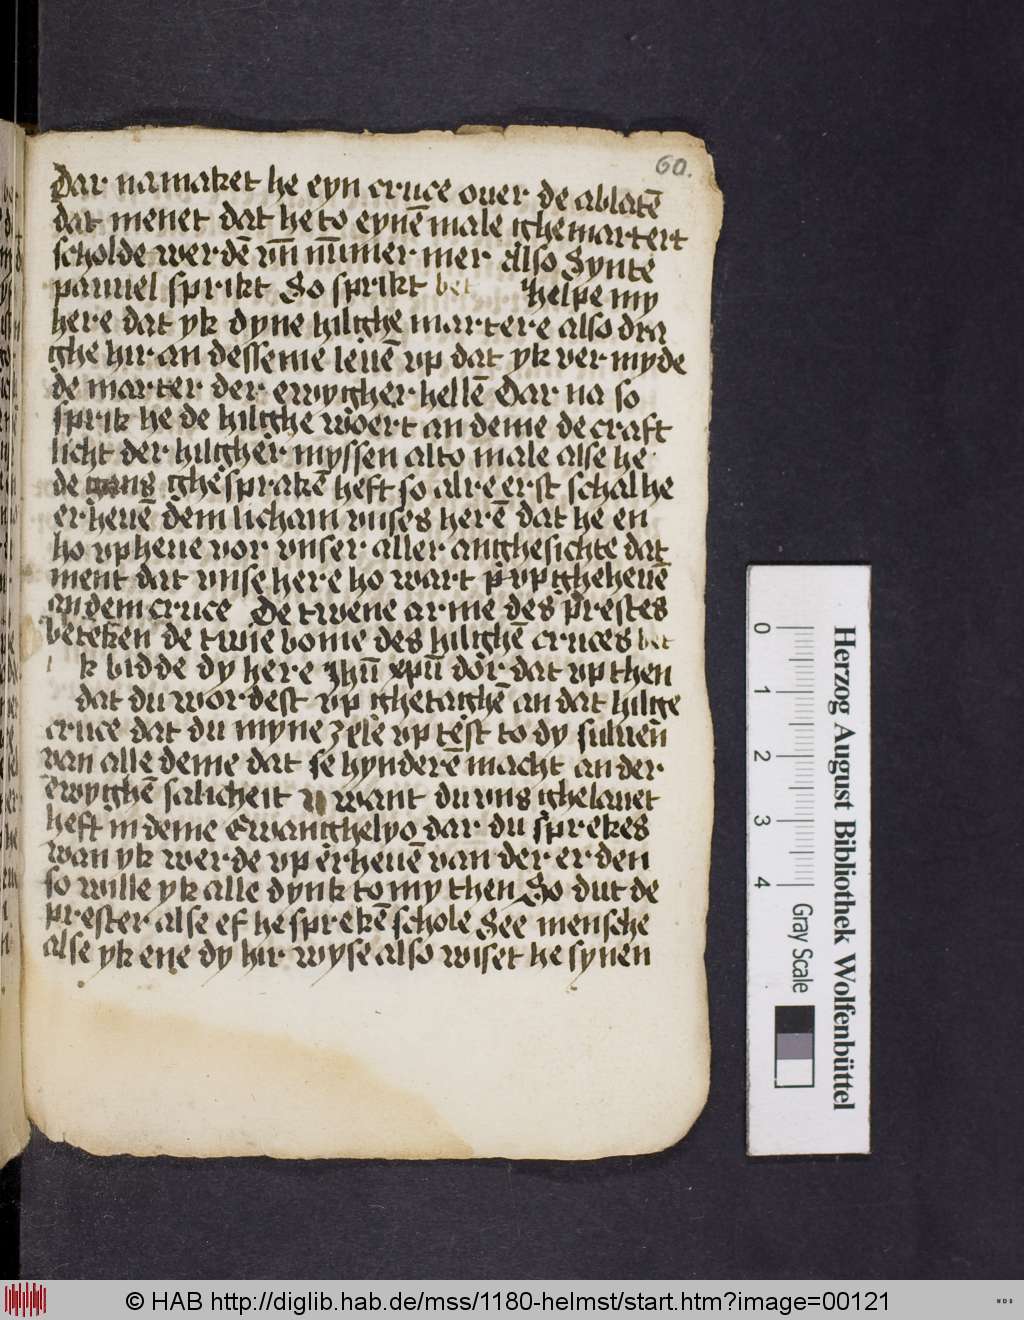 60.
Dar na maket he eyn cruce ouer de ablatē
dat menet dat he to eynē male ghe martert
scholde werdē vn̄ nūmer mer Also Synte
pauuel sprikt So sprikt bet helpe my
here dat yk dyne hilghe martere also dra
ghe hir an desseme leuē vp dat yk ver myde
de marter der ewygher hellē Dar na so
sprik he de hilghe woert an deme de craft
licht der hilgher myssen alto male alse he
de ghesprakē heft so alre erst schal he
erheuē dem licham vnses herē dat he en
ho vp heue vor vnser aller anghesichte dat
ment dat vnse here ho wart vp gheheuē
an dem cruce De twene arme des prestes
beteken de twie bome des hilghē cruces bet
k bidde dy here ihū xpū dor dat vp then
dat du wordest vp ghetaghē an dat hilge
cruce dat du myne zele vp test to dy suluen
van alle deme dat se hynderē macht an der
ewyghē salicheit want du vns ghelauet
heft in deme Ewanghelyo dar du sprekes
wan yk werde vp erheuē van der erden
so wille yk alle dynk to my then So dut de
prester alse ef he sprekē schole See mensche
alse yk ene dy hir wyse also wiset he synen
Herzog August Bibliothek Wolfenbüttel
0 1 2 3 4 Gray Scale
© HAB http://diglib.hab.de/mss/1180-helmst/start.htm?image=00121